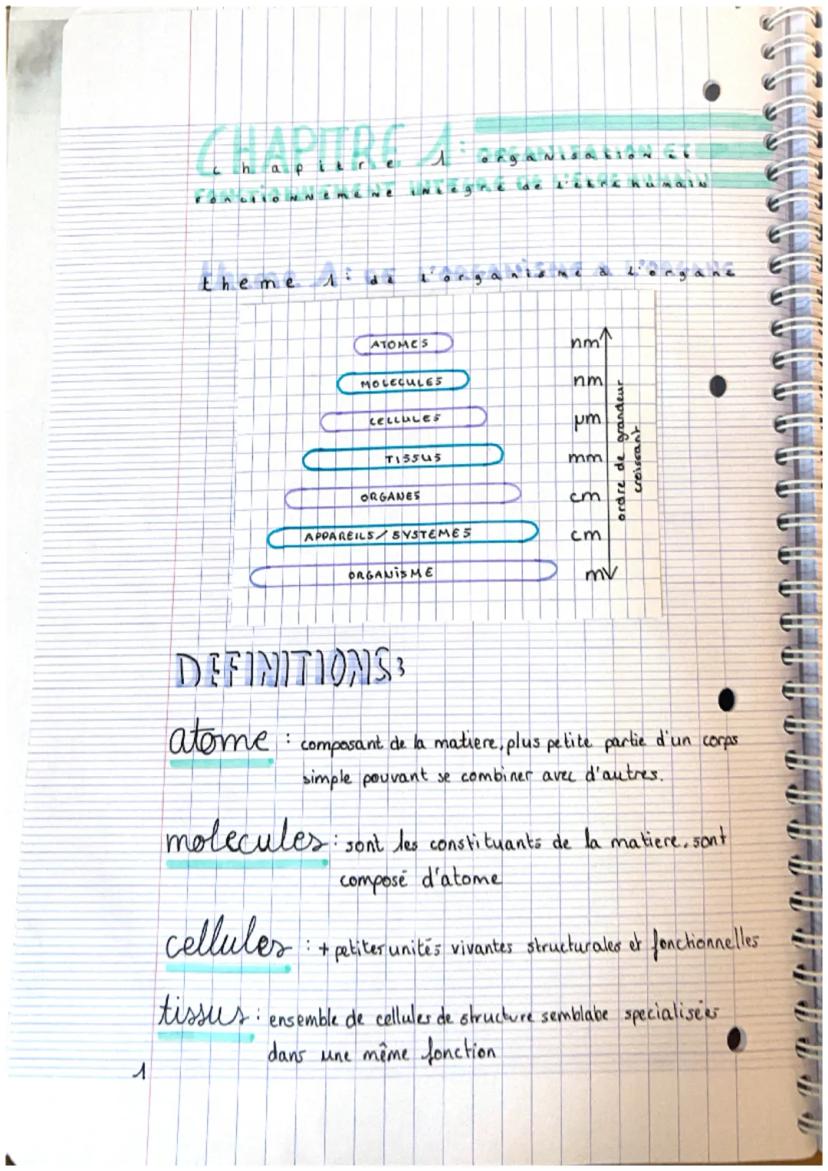 CHAPITRE 1: ORGANISATION ET
FONCTIONNEMENT INTEGRE DE L'ETRE HUMAIN
theme 1: de l'organisme a l'organe
ATOMES nm
MOLECULES nm
CELLULES µm
TISSUS mm
ORGANES cm
APPAREILS/SYSTEMES cm
ORGANISME m
ordre de grandeur
croissant
DEFINITIONS
atome : composant de la matiere, plus petite partie d'un corps
simple pouvant se combiner avec d'autres.
molecules : sont les constituants de la matiere, sont
composé d'atome
cellules : + petites unités vivantes structurales et fonctionnelles
tissus : ensemble de cellules de structure semblabe specialisées
dans une même fonction
1